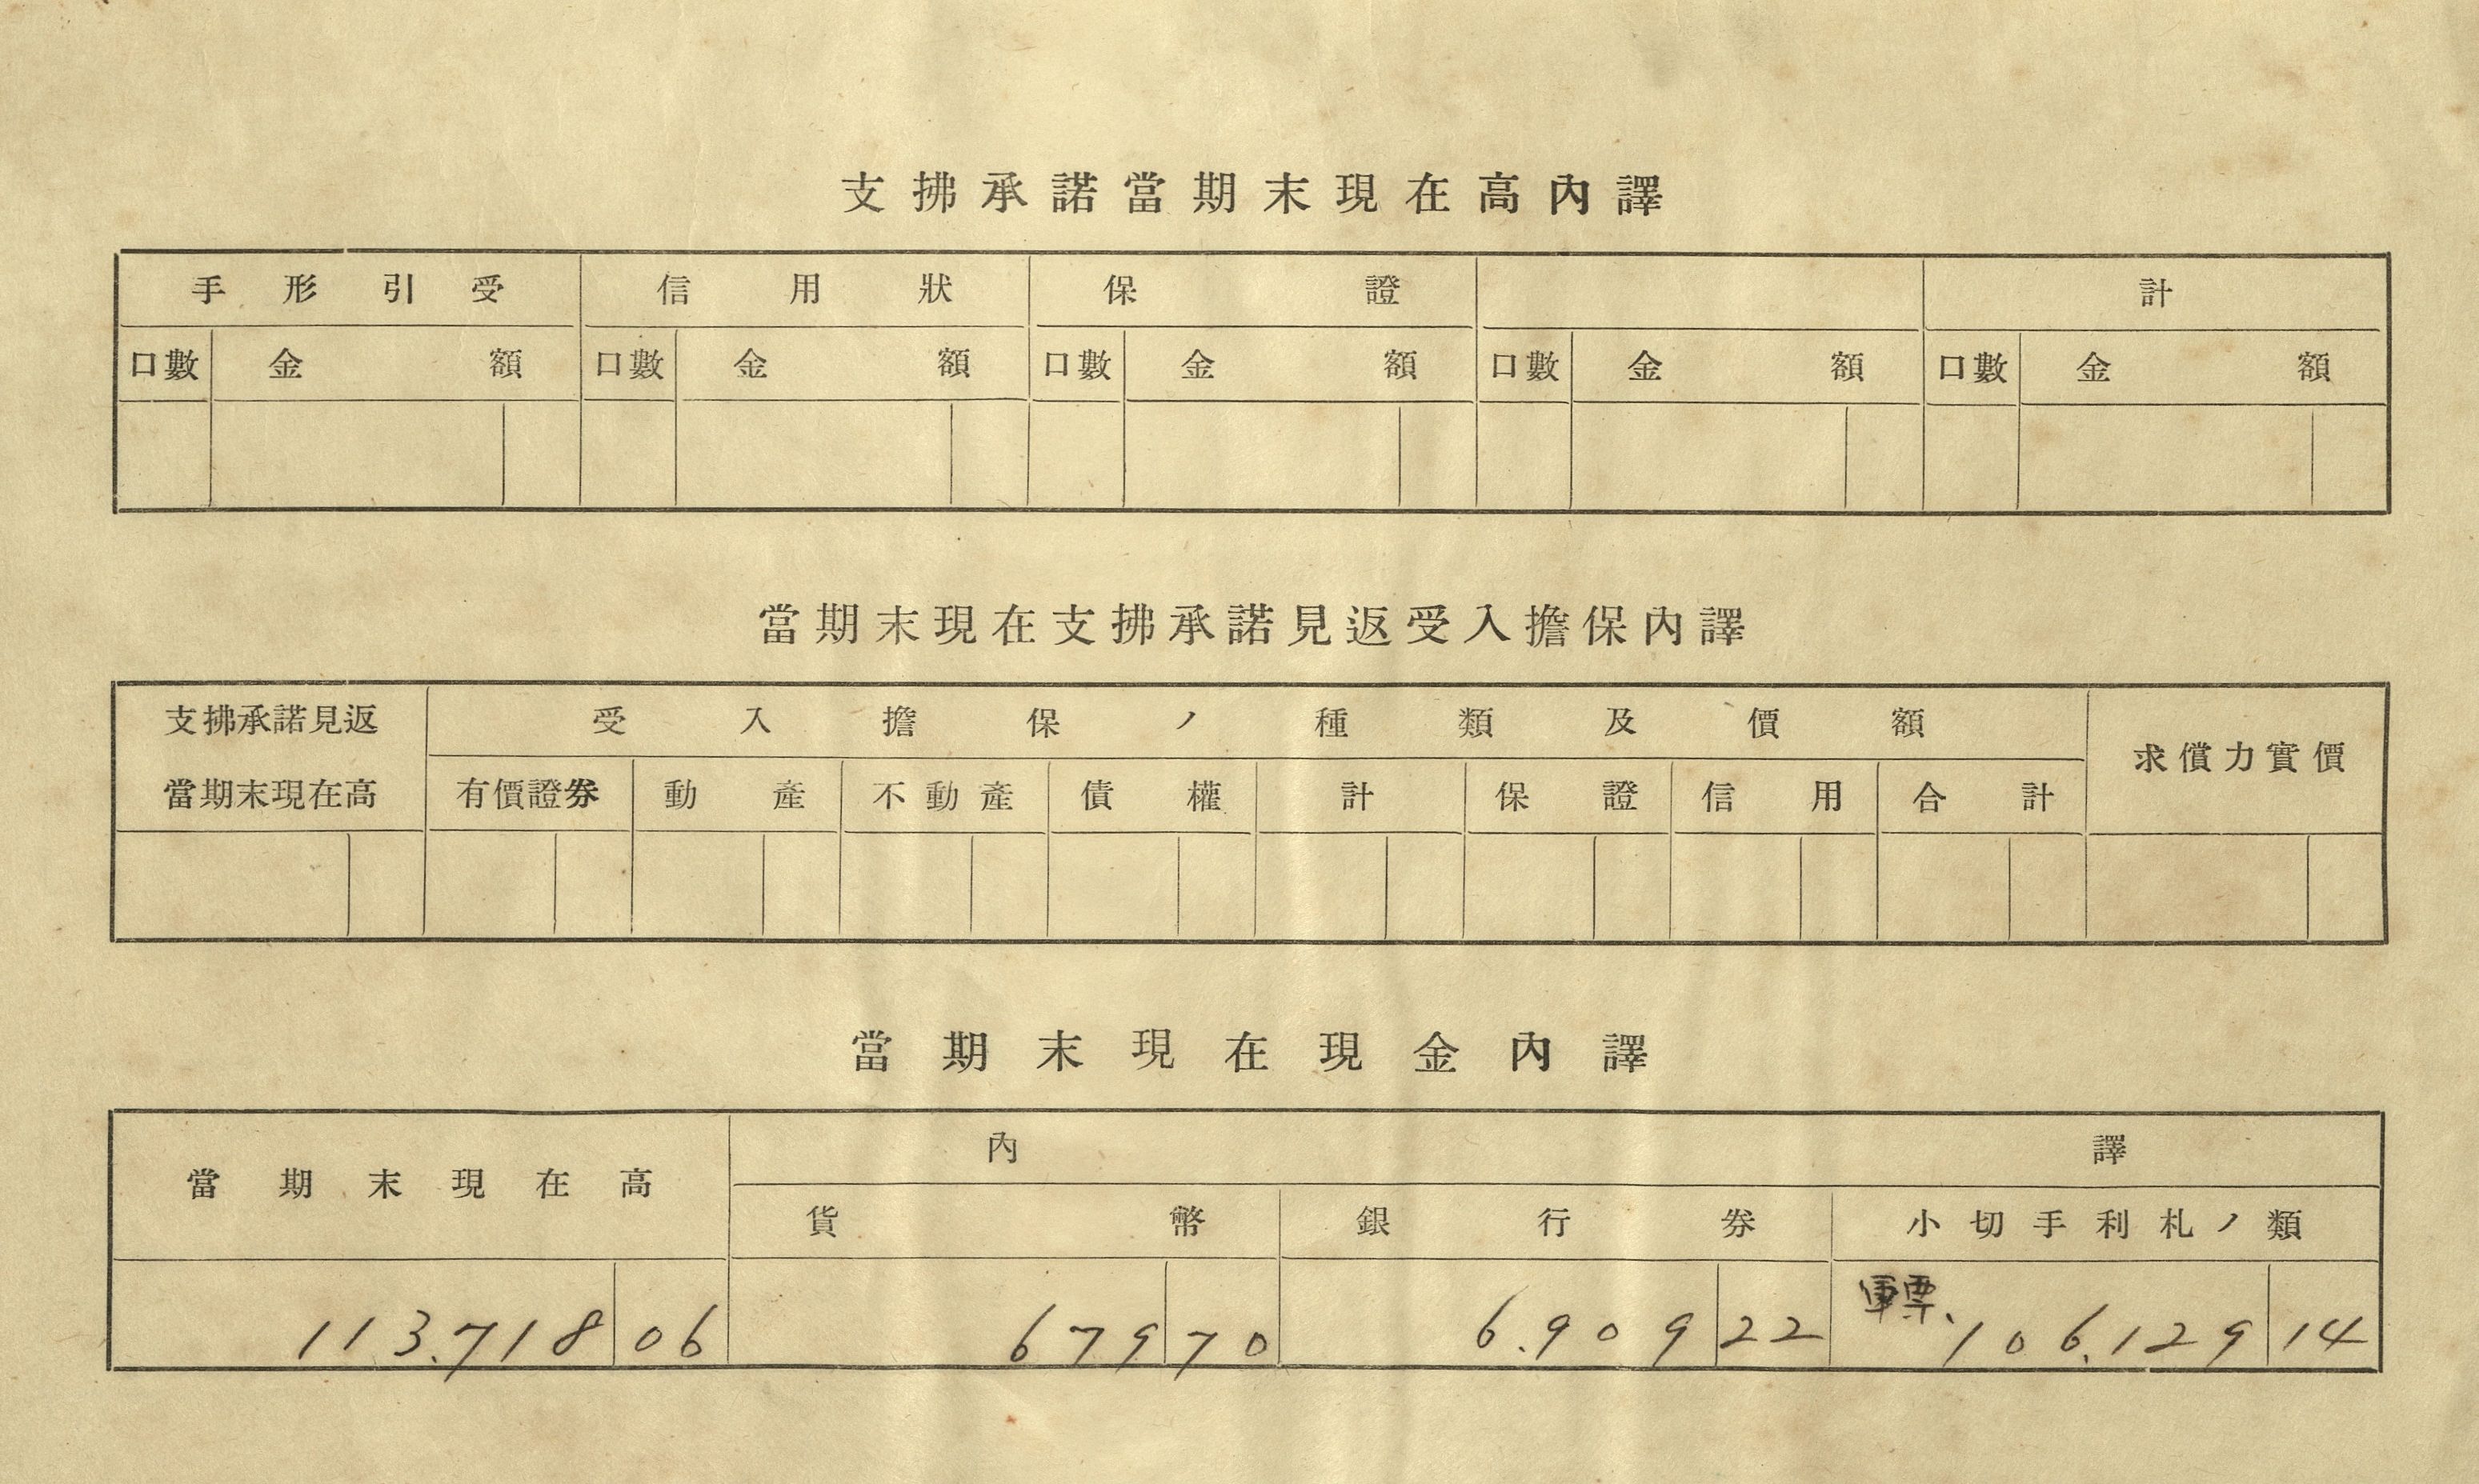 支拂承諾當期末現在高內譯
手形引受 信用狀 保證 計
口數 金額 口數 金額 口數 金額 口數 金額 口數 金額
當期末現在支拂承諾見返受入擔保內譯
支拂承諾見返 受入擔保ノ種類及價額 求償力實價
當期末現在高 有價證券 動產 不動產 債權 計 保證 信用 合計
當期末現在現金內譯
當期末現在高 內譯
貨幣 銀行券 小切手利札ノ類
軍票、
113.718 06 679 70 6.909 22 106.129 14